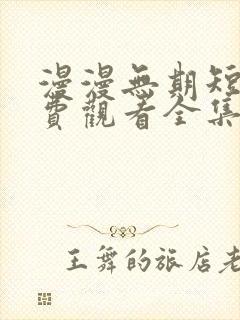 漫漫無期短
費觀看全集
王舞的旅店老